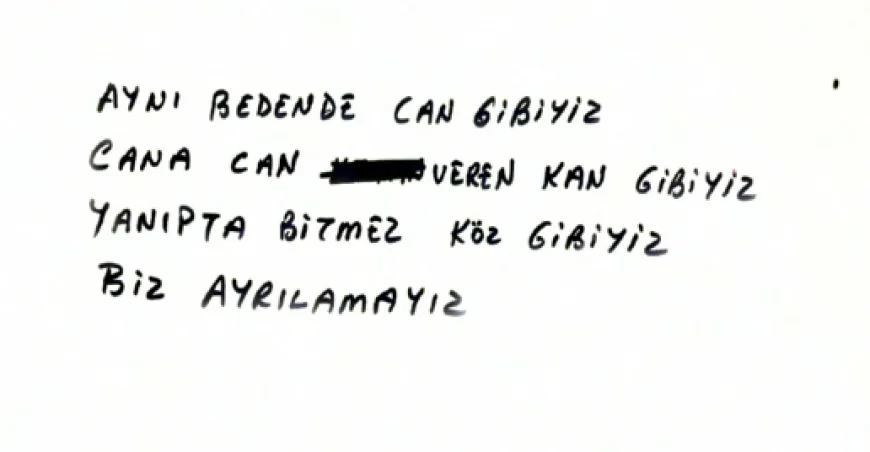 AYNI BEDENDE CAN GİBİYİZ
CANA CAN VEREN KAN GİBİYİZ
YANIPTA BİTMEZ KÖZ GİBİYİZ
BİZ AYRILAMAYIZ